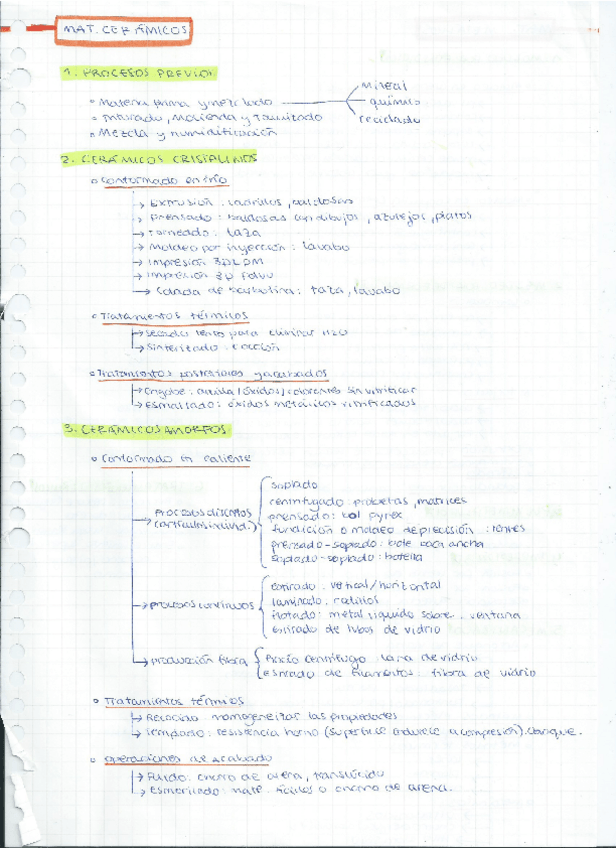 MAT. CERÁMICOS
1. PROCESOS PREVIOS
Materia prima y mezclado
mineral
químico
reciclado
Triturado, Molienda y Tamizado
Mezcla y humidificación
2. CERÁMICOS CRISTALINOS
Conformado en frío
Extrusión: ladrillos, baldosas
Prensado: baldosas con dibujos, azulejos, platos
Torneado: taza
Moldeo por inyección: lavabo
Impresión 3D LDM
Impresión 3D polvo
Colada de barbotina: taza, lavabo
Tratamientos térmicos
Secado: lento para eliminar H2O
Sinterizado: cocción
Tratamientos posteriores y acabados
Engobe: arcilla/óxidos/colorantes sin vitrificar
Esmaltado: óxidos metálicos vitrificados
3. CERÁMICOS AMORFOS
Conformado en caliente
Procesos discretos
(artículos individ.)
soplado
centrifugado: probetas, matrices
prensado: bol pyrex
fundición o moldeo de precisión: lentes
prensado-soplado: bote boca ancha
soplado-soplado: botella
procesos continuos
estirado: vertical/horizontal
laminado: rodillos
flotado: metal líquido sobre: ventana
estirado de tubos de vidrio
producción fibra
Rocío centrífugo: lana de vidrio
Estirado de filamentos: fibra de vidrio
Tratamientos térmicos
Recocido: homogeneizar las propiedades
Templado: resistencia horno (superficie endurece a compresión).
Operaciones de acabado
Pulido: chorro de arena, translúcido
Esmerilado: mate. Ácidos o chorro de arena.